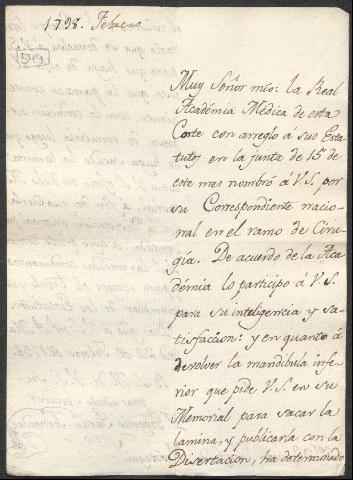 1798. Febrero
Muy Señor mio: la Real
Académia Medica de esta
Corte con arreglo á sus Esta-
tutos en la junta de 15 de
este mes nombró á V.S. por
su Correspondiente nacio-
nal en el ramo de Ciru-
gía. De acuerdo de la Aca-
démia lo participo á V.S.
para su inteligencia y sa-
tisfaccion: y en quanto á
devolver la mandibula infe-
rior que pide V.S. en su
Memorial para sacar la
lamina, y publicarla con la
Disertacion, ha determinado